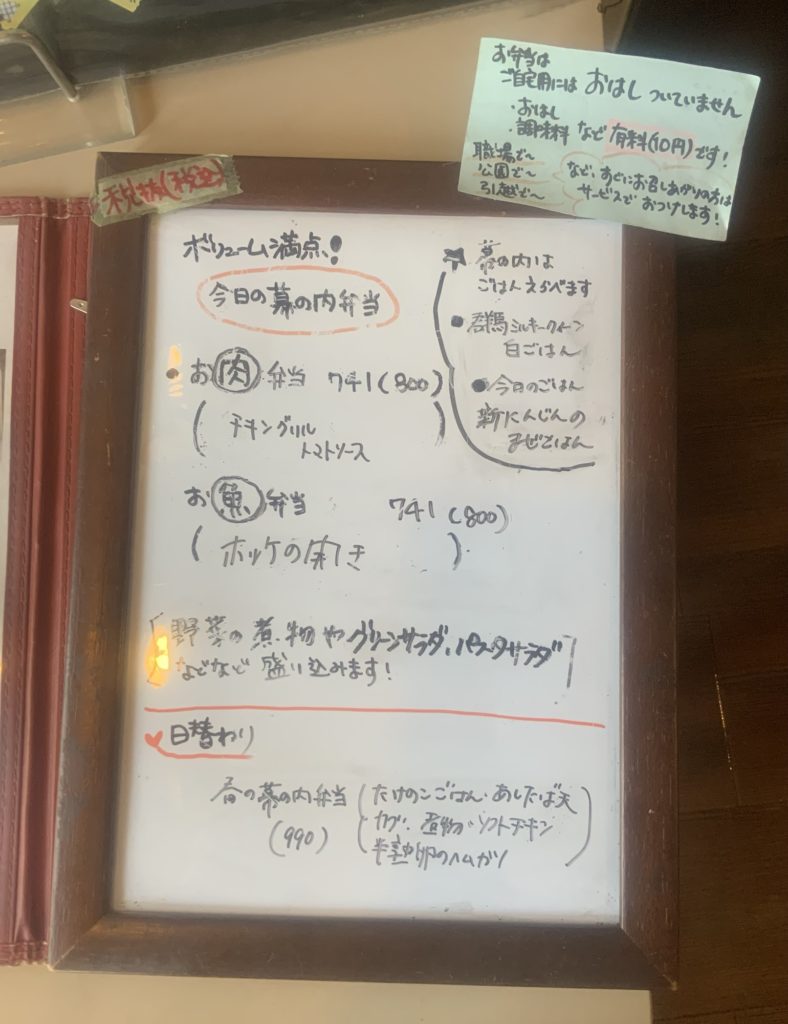 お弁当は
ご自宅用には おはし ついていません
・おはし
・調味料 など 有料(10円)です!
職場で〜
公園で〜
引越で〜
など、すぐにお召しあがりの方は
サービスで おつけします!
税抜(税込)
ボリューム満点!
今日の幕の内弁当
★ 幕の内は
ごはんえらべます
● 群馬ミルキークイーン
白ごはん
● 今日のごはん
新にんじんの
まぜごはん
● お肉弁当 741(800)
( チキングリル
トマトソース )
お魚弁当 741(800)
( ホッケの開き )
「野菜の煮物やグリーンサラダ、パスタサラダ
などなど 盛り込みます!」
♥日替わり
春の幕の内弁当
(990)
(たけのこごはん・あしたば天
煮物・ソフトチキン
半熟卵のハムカツ)